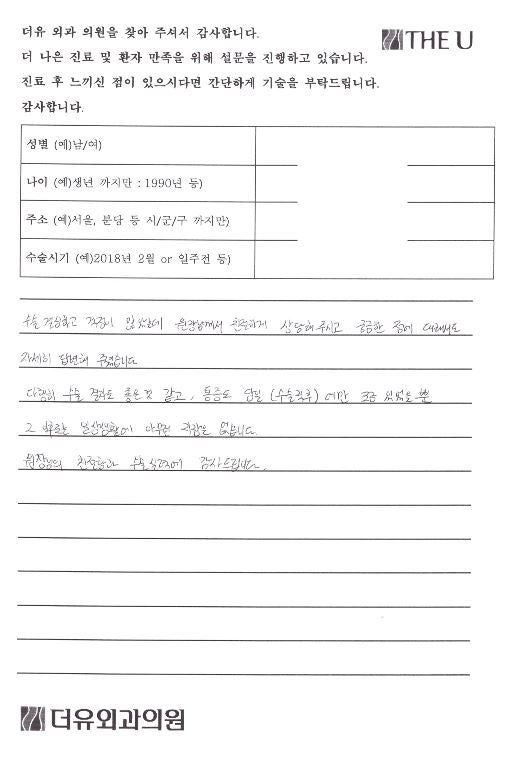 더유 외과 의원을 찾아 주셔서 감사합니다.
THE U
더 나은 진료 및 환자 만족을 위해 설문을 진행하고 있습니다.
진료 후 느끼신 점이 있으시다면 간단하게 기술을 부탁드립니다.
감사합니다.
성별 (예)남/여)
나이 (예)생년 까지만 : 1990년 등)
주소 (예)서울, 분당 등 시/군/구 까지만)
수술시기 (예)2018년 2월 or 일주전 등)
수술 결정하고 걱정이 많았는데 원장님께서 친절하게 상담해주시고 궁금한 점에 대해서도
자세히 답변해 주셨습니다
다행히 수술 결과도 좋은것 같고, 통증도 당일 (수술직후) 에만 조금 있었을 뿐
그 이후로는 일상생활에 아무런 지장은 없습니다.
원장님의 친절함과 수술실력에 감사드립니다.
더유외과의원